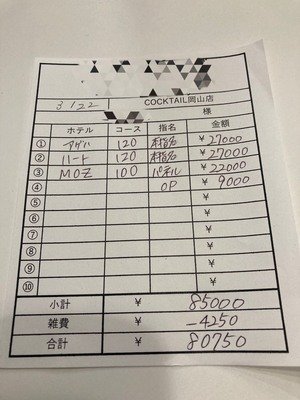 3/22 COCKTAIL岡山店
様
ホテル コース 指名 金額
① アゲハ 120 本指名 ¥27000
② ハート 120 本指名 ¥27000
③ MOZ 100 パネル ¥22000
④ OP ¥9000
⑤ ¥
⑥ ¥
⑦ ¥
⑧ ¥
⑨ ¥
⑩ ¥
小計 ¥ 85000
雑費 ¥ -4250
合計 ¥ 80750